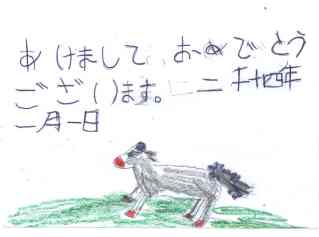 あけまして おめでとう
ございます。 二千十四年
一月一日